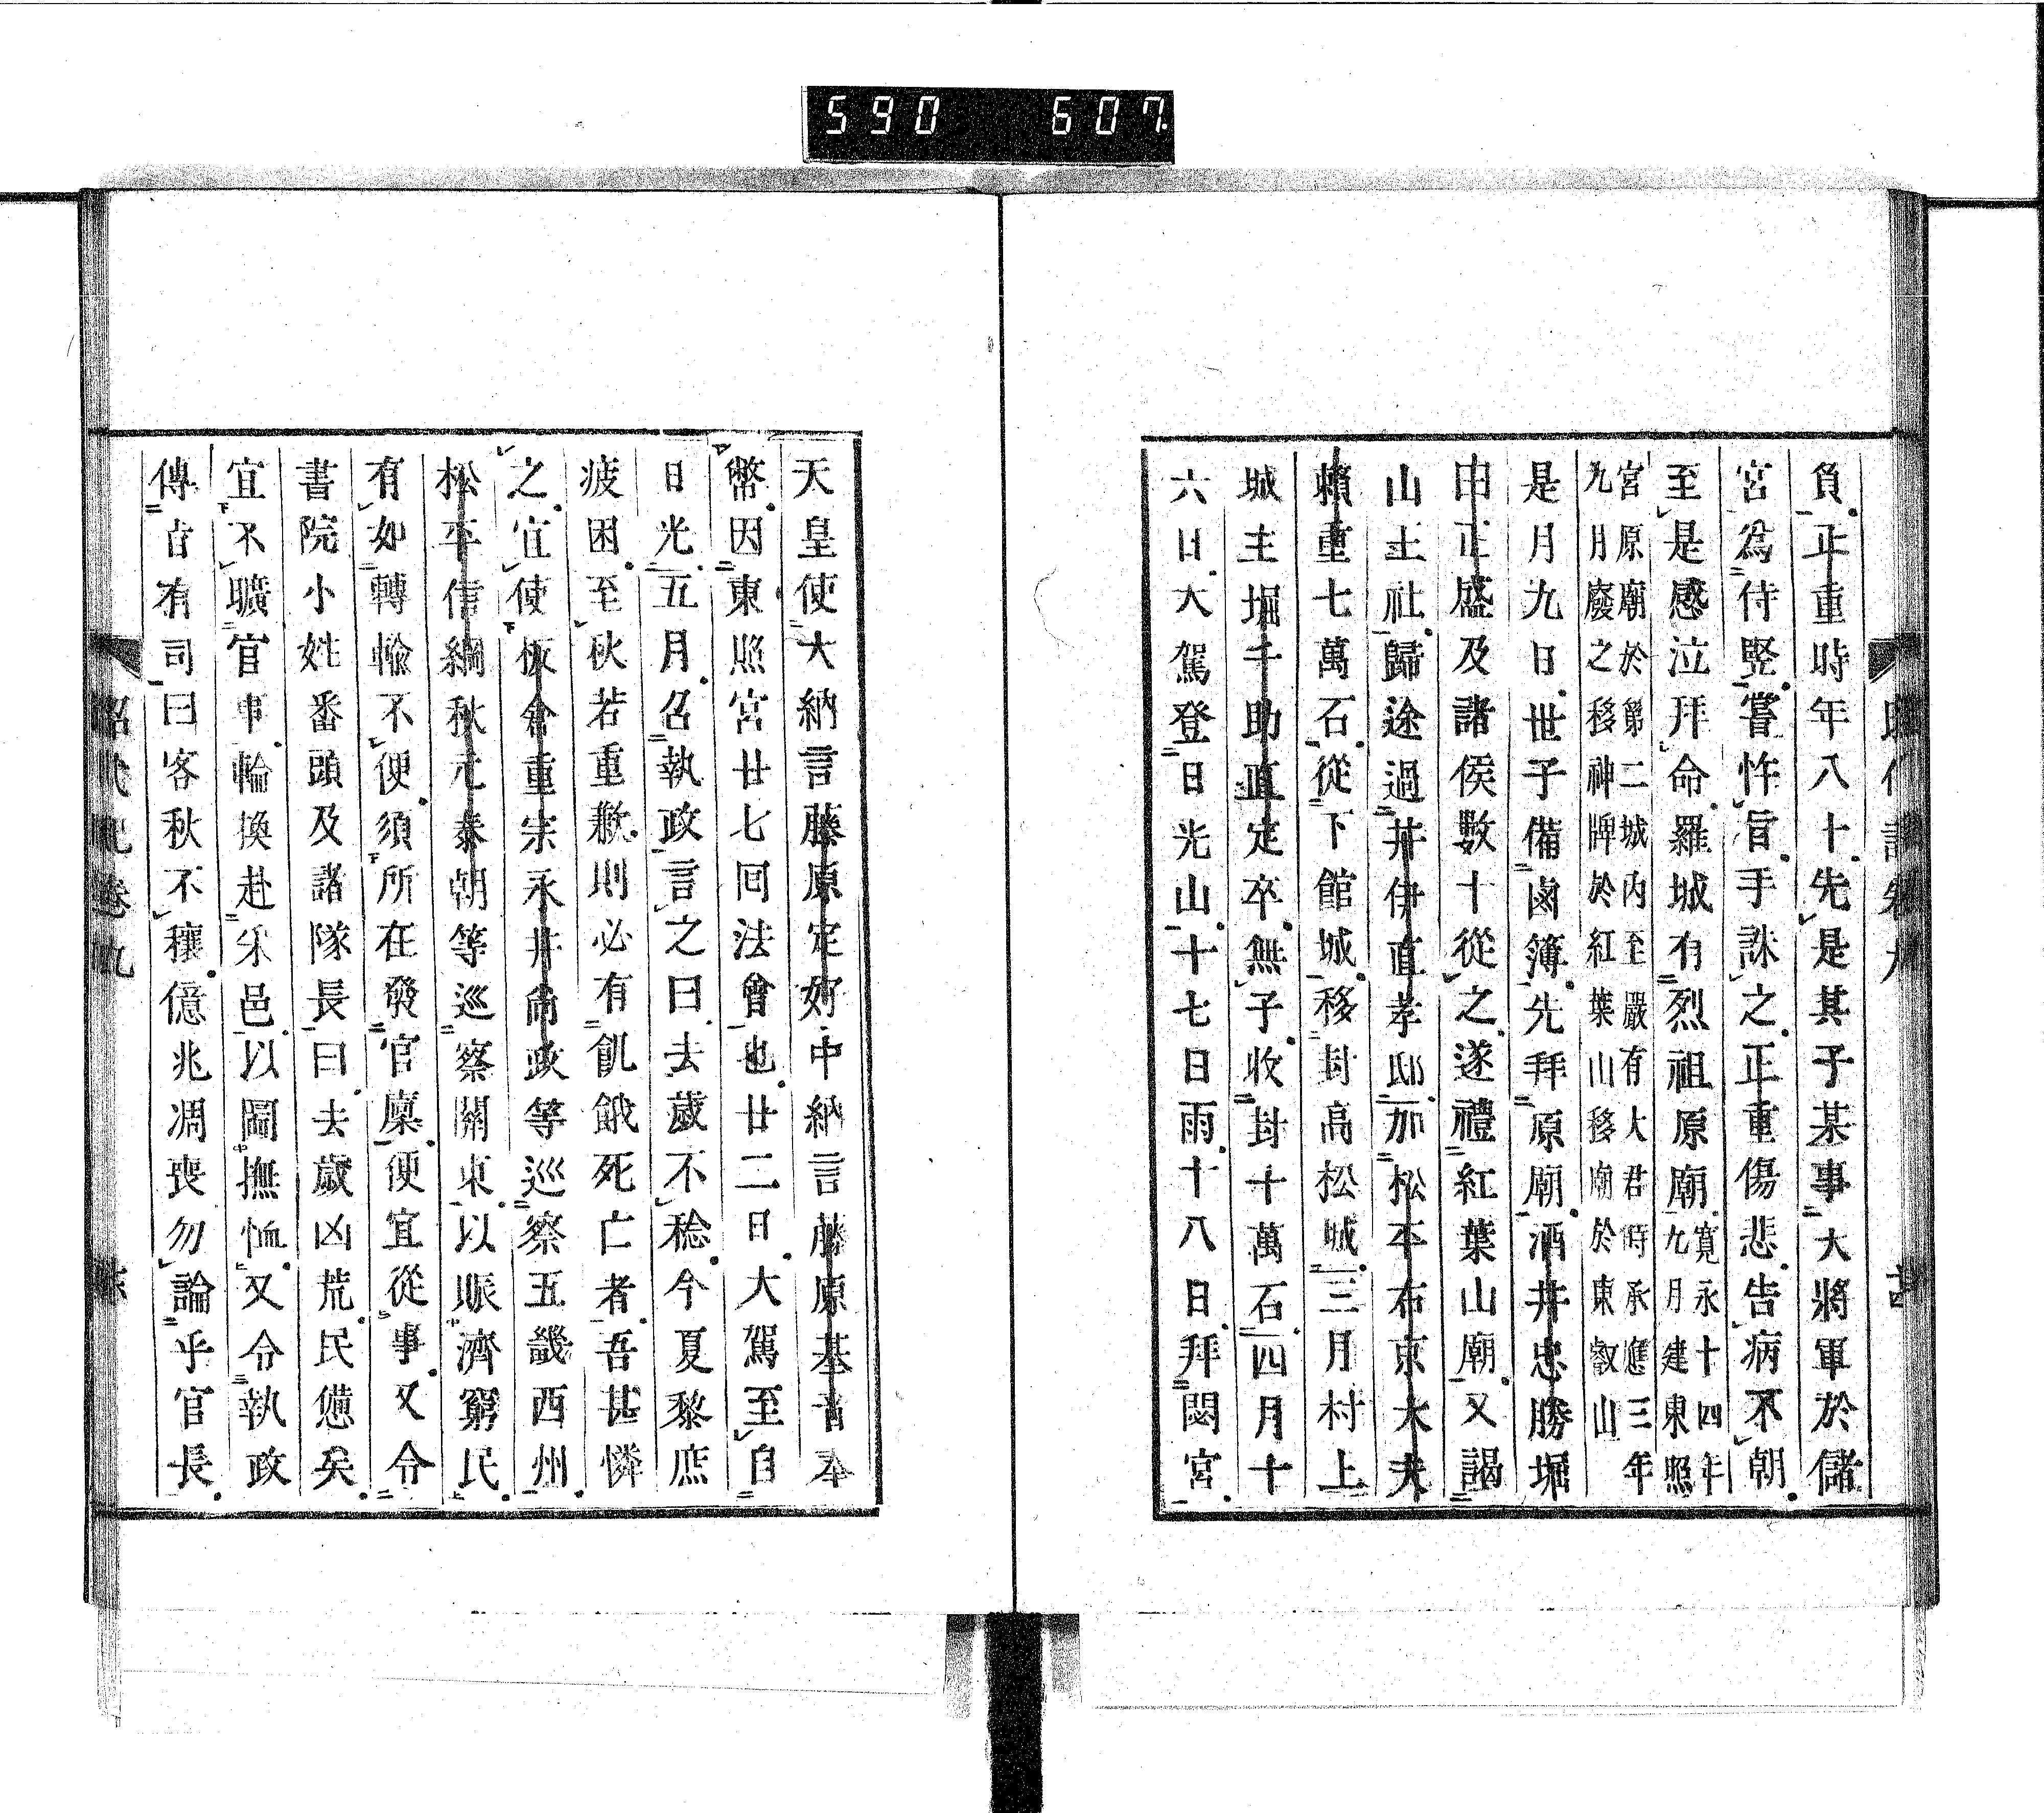 590 607
昭代記卷九
負正重時年八十先是其子某事大將軍於儲
宮爲侍竪嘗忤旨手誅之正重傷悲告病不朝
至是感泣拜命羅城有烈祖原廟寛永十四年九月建東照
宮原廟於第二城内至嚴有大君時承應三年
九月廢之移神牌於紅葉山移廟於東叡山
是月九日世子備鹵簿先拜原廟酒井忠勝堀
田正盛及諸侯數十從之遂禮紅葉山廟又謁
山王社歸途過井伊直孝邸加松平右京大夫
賴重七萬石從下館城移封高松城三月村上
城主堀千助直定卒無子收封十萬石四月十
六日大駕登日光山十七日雨十八日拜閟宮
天皇使大納言藤原定好中納言藤原基音奉
幣因東照宮廿七回法會也廿二日大駕至自
日光五月召執政言之曰去歲不稔今夏黎庶
疲困至秋若重歉則必有飢餓死亡者吾甚憐
之宜使板倉重宗永井尚政等巡察五畿西州
松平信綱秋元泰朝等巡察關東以賑濟窮民
有如轉輸不便須所在發官廩便宜從事又令
書院小姓番頭及諸隊長曰去歲凶荒民憊矣
宜不曠官事輪換赴釆邑以圖撫恤又令執政
傳旨有司曰客秋不穰億兆凋喪勿論乎官長
昭代記卷九